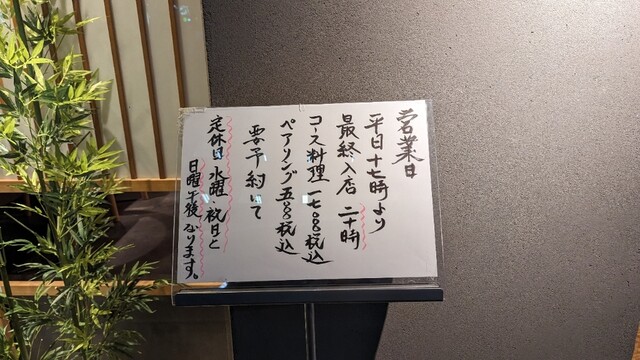 営業日
平日十七時より
最終入店 二十時
コース料理 一七〇〇〇税込
ペアリング 五五〇〇税込
要予約にて
定休日 水曜、祝日と
日曜午後になります。